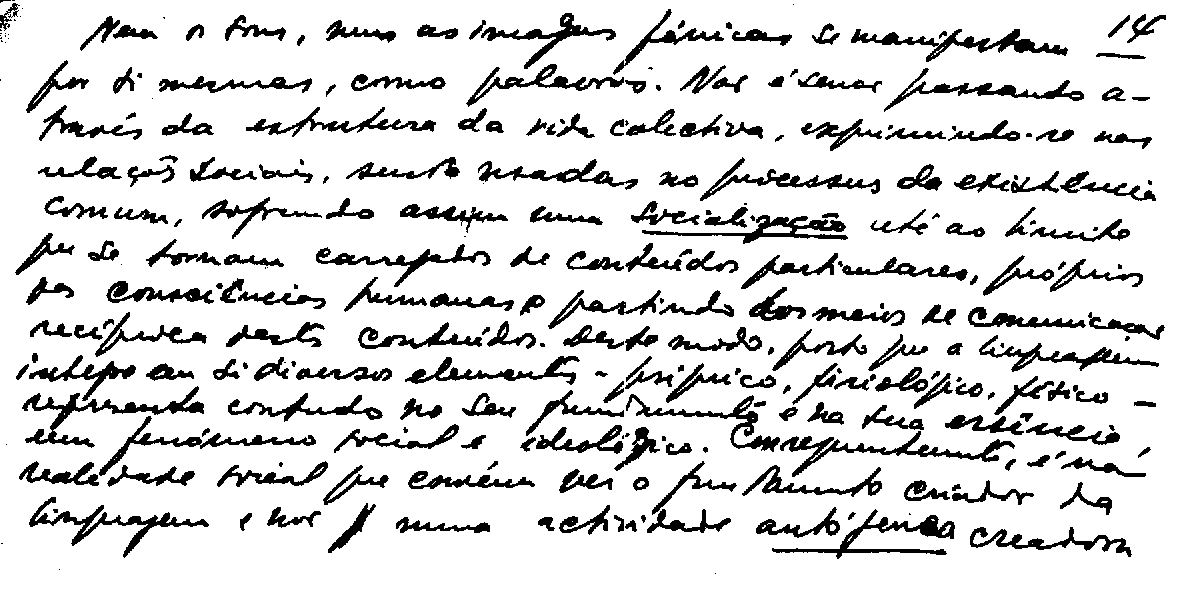 14
Nem o som, nem as imagens fónicas se manifestam
por si mesmas, como palavras. Nas é senão passando a-
través da estrutura da vida colectiva, exprimindo-se nas
relações sociais, sendo usadas no processus da existência
comum, sofrendo assim uma socialização até ao limite
que se tornam carregados de conteúdos particulares, próprios
das consciências humanas e partindo dos meios de comunicação
recíproca destes conteúdos. Deste modo, posto que a linguagem
integre em si diversos elementos - psíquico, fisiológico, físico -
representa contudo no seu fundamento e na sua essência,
um fenómeno social e ideológico. Consequentemente, é na
realidade social que convém ver o fundamento criador da
linguagem e nos numa actividade autógena creadora